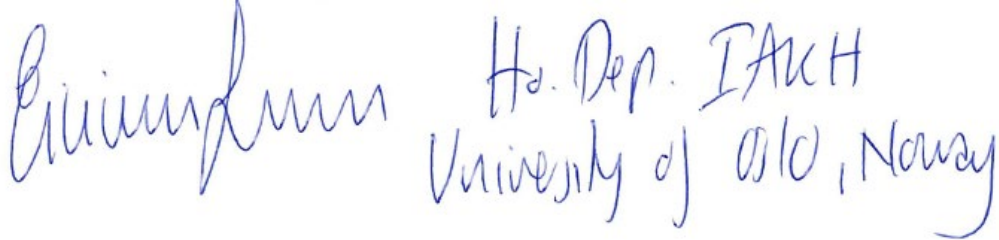 Hd. Dep. IAKH
University of Oslo, Norway